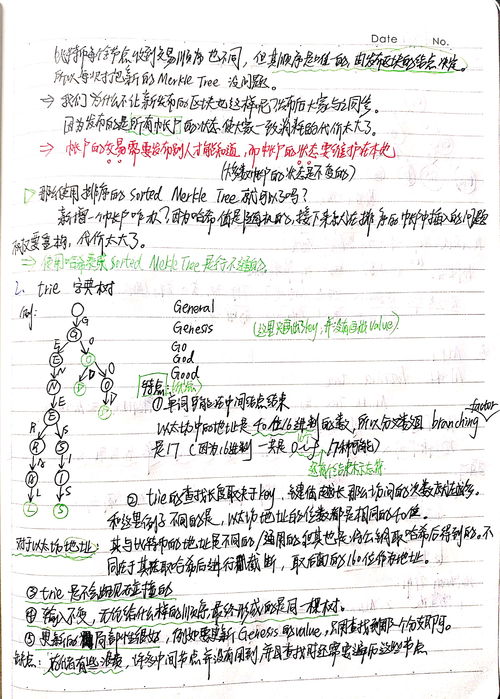 Date No.
比特币每个节点收到交易顺序也不同，但其顺序是唯一的，由发布区块的结点决定。
所以每次打把新的 Merkle Tree 没问题。
⇒ 我们为什么不让新发布的区块也这样记了然后大家与之同步。
因为发布的是所有帐户的状态，使大家一致消耗的代价太大了。
⇒ 帐户的交易需要发布别人才能知道，而帐户的状态要维护在本地
(多数帐户的状态是不变的)
那么使用排序的 Sorted Merkle Tree 就可以了吗？
新增一个帐户咋办？因为哈希值是随机的，接下来插入在排序的中间插入的问题
需要重构，代价太大了。
⇒ 使用哈希表 Sorted Mekle Tree 是行不通的。
2. trie 字典树
例:
General
Genesis (这里只画了key，并没有画value)
Go
God
Good
特点:(优点)
① 单词可能在中间结点结束
以太坊中的地址是40位16进制的数，所以分支数目 branching factor
是17 (因为16进制一共是0~f，17种可能)
还有个结束标志符
② trie的查找长度取决于key，键值越长那么访问的次数就越多。
和这里例子不同的是，以太坊地址的位数都是相同的40位。
对于以太坊地址: 其与比特币的地址是不同的/通用的，和其也是将公钥取哈希后得到的。不
同在于其取哈希后进行截断，取后面的160位作为地址。
③ trie 是不会出现碰撞的
④ 输入不变，无论给什么样的顺序，最终形成的是同一棵树。
⑤ 更新的局部性很好，例如要更新 Genesis 的value，只用查找到那个分支即可。
缺点: 存储有些浪费，许多中间节点并没有用到，并且查找时经常要遍历这些节点